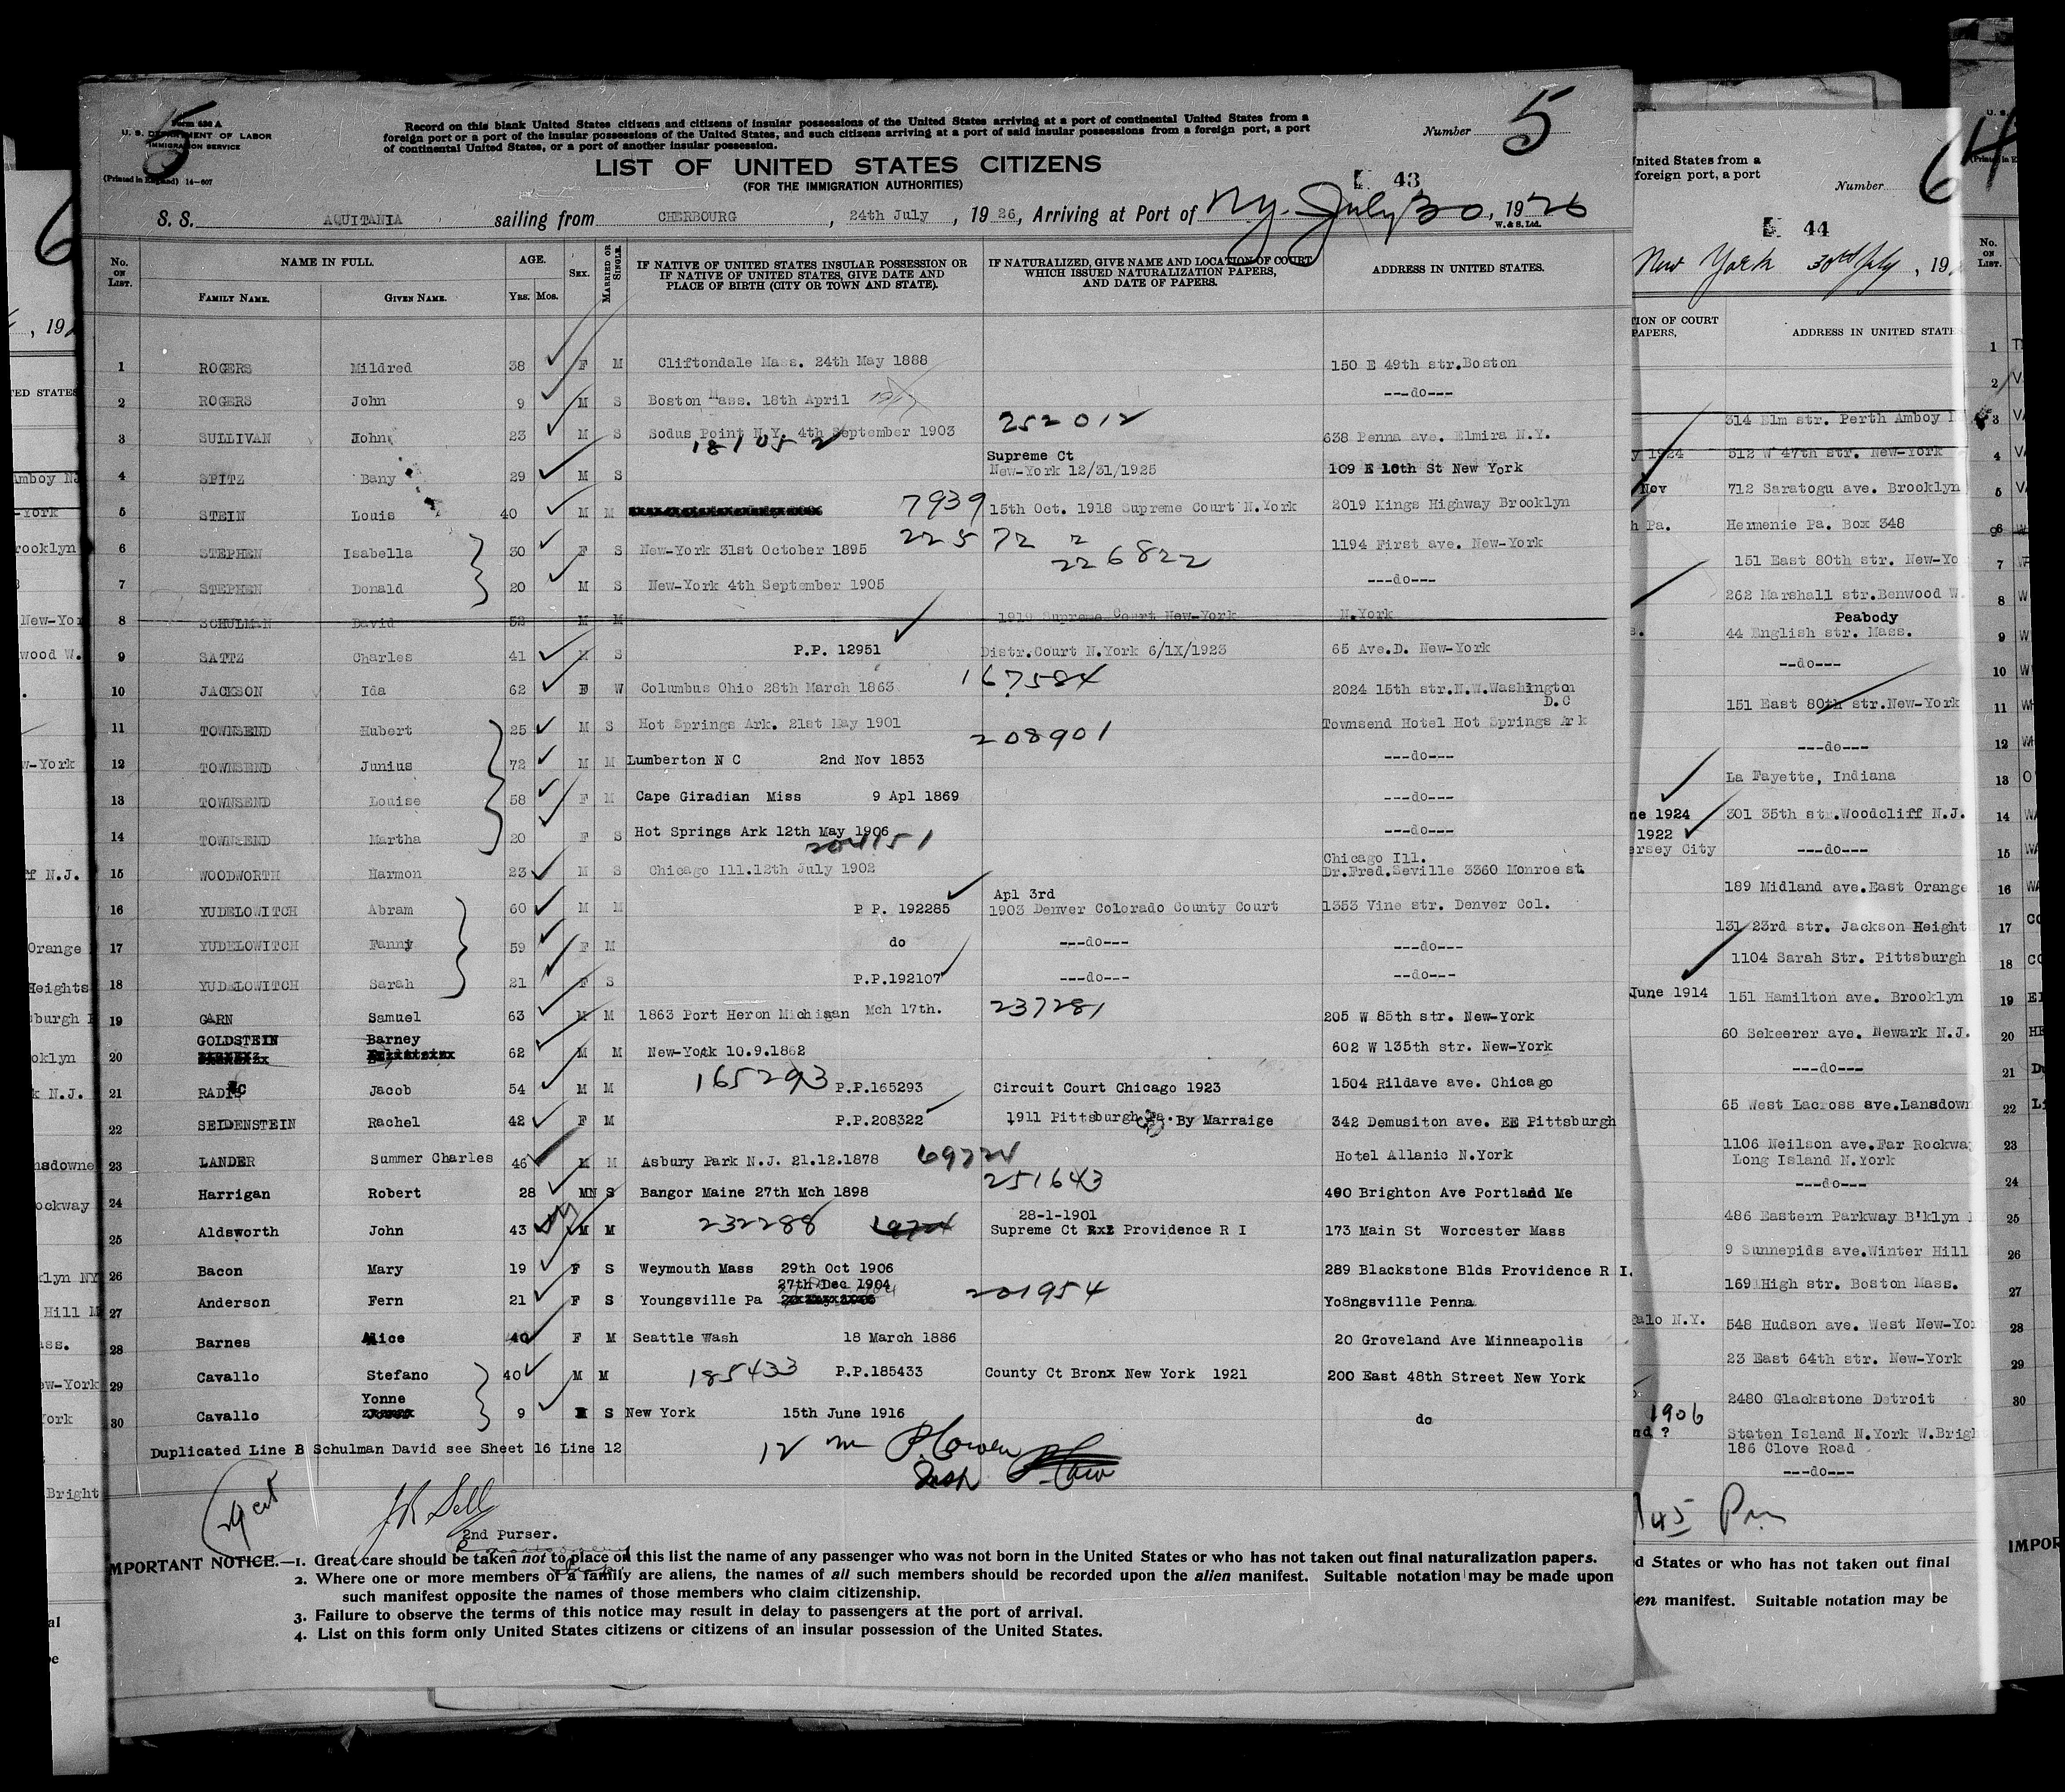 5
Form 630 A
U. S. DEPARTMENT OF LABOR
IMMIGRATION SERVICE
(Printed in England) 14-607
Record on this blank United States citizens and citizens of insular possessions of the United States arriving at a port of continental United States from a
foreign port or a port of the insular possessions of the United States, and such citizens arriving at a port of said insular possessions from a foreign port, a port
of continental United States, or a port of another insular possession.
Number 5
LIST OF UNITED STATES CITIZENS
(FOR THE IMMIGRATION AUTHORITIES)
43
S. S. AQUITANIA sailing from CHERBOURG, 24th July, 1926, Arriving at Port of N.Y. July 30, 1926
W. & S. Ltd.
No. ON LIST. NAME IN FULL. AGE. SEX. MARRIED OR SINGLE. IF NATIVE OF UNITED STATES INSULAR POSSESSION OR IF NATIVE OF UNITED STATES, GIVE DATE AND PLACE OF BIRTH (CITY OR TOWN AND STATE). IF NATURALIZED, GIVE NAME AND LOCATION OF COURT WHICH ISSUED NATURALIZATION PAPERS, AND DATE OF PAPERS. ADDRESS IN UNITED STATES.
FAMILY NAME. GIVEN NAME. YRS. MOS.
1 ROGERS Mildred 38 F M Cliftondale Mass. 24th May 1888 150 E 49th str.Boston
2 ROGERS John 9 M S Boston Mass. 18th April ---do---
3 SULLIVAN John 23 M S Sodus Point N.Y. 4th September 1903 252012 638 Penna ave. Elmira N.Y.
181052
Supreme Ct
4 SPITZ Bany 29 M S New-York 12/31/1925 109 E 10th St New York
5 STEIN Louis 40 M M 7939 15th Oct. 1918 Supreme Court N.York 2019 Kings Highway Brooklyn
225 72 2
6 STEPHEN Isabella 30 F S New-York 31st October 1895 226822 1194 First ave. New-York
7 STEPHEN Donald 20 M S New-York 4th September 1905 ---do---
8 SCHULMAN David 52 M M 1919 Supreme Court New-York N.York
9 SATTZ Charles 41 M S P.P. 12951 Distr.Court N.York 6/IX/1923 65 Ave.D. New-York
10 JACKSON Ida 62 F W Columbus Ohio 28th March 1863 167584 2024 15th str.N.W.Washington
D.C
11 TOWNSEND Hubert 25 M S Hot Springs Ark. 21st May 1901 208901 Townsend Hotel Hot Springs Ark
12 TOWNSEND Junius 72 M M Lumberton N C 2nd Nov 1853 ---do---
13 TOWNSEND Louise 58 F M Cape Giradian Miss 9 Apl 1869 ---do---
14 TOWNSEND Martha 20 F S Hot Springs Ark 12th May 1906 ---do---
204151
Chicago Ill.
15 WOODWORTH Harmon 23 M S Chicago Ill.12th July 1902 Dr.Fred.Seville 3360 Monroe st.
Apl 3rd
16 YUDELOWITCH Abram 60 M M P P. 192285 1903 Denver Colorado County Court 1353 Vine str. Denver Col.
17 YUDELOWITCH Fanny 59 F M do ---do--- ---do---
18 YUDELOWITCH Sarah 21 F S P.P.192107 ---do--- ---do---
19 GARN Samuel 63 M M 1863 Port Heron Michigan Mch 17th. 237281 205 W 85th str. New-York
GOLDSTEIN Barney
20 62 M M New-York 10.9.1862 602 W 135th str. New-York
165293
21 RADIC Jacob 54 M M P.P.165293 Circuit Court Chicago 1923 1504 Rildave ave. Chicago
22 SEIDENSTEIN Rachel 42 F M P.P.208322 1911 Pittsburgh Pa. By Marraige 342 Demusiton ave. EE Pittsburgh
23 LANDER Summer Charles 46 M M Asbury Park N.J. 21.12.1878 69724 Hotel Allanic N.York
251643
24 Harrigan Robert 28 MN S Bangor Maine 27th Mch 1898 400 Brighton Ave Portland Me
28-1-1901
25 Aldsworth John 43 M M 232288 1924 Supreme Ct Providence R I 173 Main St Worcester Mass
26 Bacon Mary 19 F S Weymouth Mass 29th Oct 1906 289 Blackstone Blds Providence R I.
27th Dec 1904
27 Anderson Fern 21 F S Youngsville Pa 201954 Yo8ngsville Penna
28 Barnes Alice 40 F M Seattle Wash 18 March 1886 20 Groveland Ave Minneapolis
29 Cavallo Stefano 40 M M 185433 P.P.185433 County Ct Bronx New York 1921 200 East 48th Street New York
Yonne
30 Cavallo 9 S New York 15th June 1916 do
Duplicated Line B Schulman David see Sheet 16 Line 12
12 m
2nd Purser.
IMPORTANT NOTICE.—1. Great care should be taken not to place on this list the name of any passenger who was not born in the United States or who has not taken out final naturalization papers.
2. Where one or more members of a family are aliens, the names of all such members should be recorded upon the alien manifest. Suitable notation may be made upon
such manifest opposite the names of those members who claim citizenship.
3. Failure to observe the terms of this notice may result in delay to passengers at the port of arrival.
4. List on this form only United States citizens or citizens of an insular possession of the United States.
United States from a
foreign port, a port
Number 6
44
New York 30th July, 19
TION OF COURT
PAPERS,
ADDRESS IN UNITED STATE
314 Elm str. Perth Amboy
y 1924 512 W 47th str. New-York
Nov 712 Saratogu ave. Brooklyn
h Pa. Hermenie Pa. Box 348
151 East 80th str. New-Yo
262 Marshall str.Benwood W.
Peabody
44 English str. Mass.
--do---
151 East 80th str.New-York
---do---
La Fayette, Indiana
ne 1924 301 35th str.Woodcliff N.J.
1922
ersey City ---do---
189 Midland ave.East Orange
131 23rd str. Jackson Height
1104 Sarah Str. Pittsburgh
June 1914 151 Hamilton ave. Brooklyn
60 Sekeerer ave. Newark N.J.
---do---
65 West Lacross ave.Lansdown
1106 Neilson ave.Far Rockway
Long Island N.York
---do---
486 Eastern Parkway B'klyn
9 Sunnepids ave.Winter Hill
169 High str. Boston Mass.
falo N.Y. 548 Hudson ave. West New-Yo
23 East 64th str. New-York
2480 Glackstone Detroit
1906
nd ? Staten Island N.York W.Brig
186 Clove Road
---do---
145 Pm
ed States or who has not taken out final
en manifest. Suitable notation may be